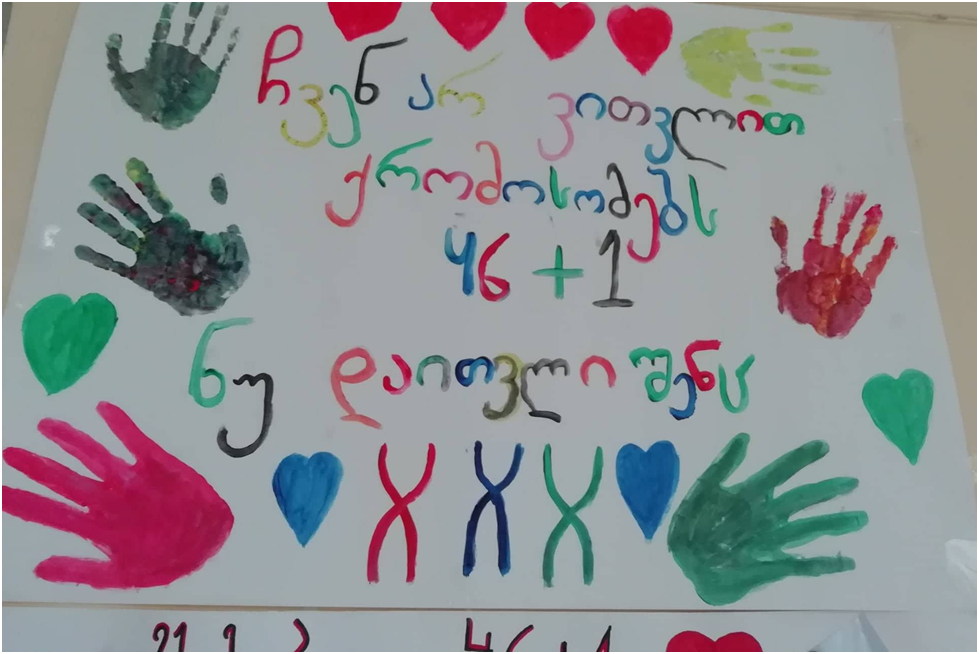 ჩვენ არ ვითვლით
ქრომოსომებს
46 + 1
ნუ დაითვლი შენც